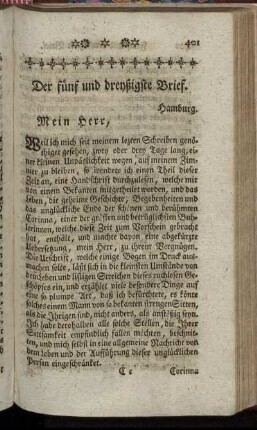 401
Der fünf und dreyßigste Brief.
Hamburg.
Mein Herr,
Weil ich mich seit meinem letzten Schreiben genö-
thiget gesehen, zwey oder drey Tage lang, ei-
ner kleinen Unpäßlichkeit wegen, auf meinem Zim-
mer zu bleiben, so wendete ich einen Theil dieser
Zeit an, eine Handschrift durchzulesen, welche mir
von einem Bekannten mitgetheilet worden, und das
Leben, die geheime Geschichte, Begebenheiten und
das unglückliche Ende der schönen und berühmten
Corinna, einer der größten und betrüglichsten Buh-
lerinnen, welche diese Zeit zum Vorschein gebracht
hat, enthält, und machte davon eine abgekürzte
Uebersetzung, mein Herr, zu ihrem Vergnügen.
Die Urschrift, welche einige Bogen im Druck aus-
machen solte, läßt sich in die kleinsten Umstände von
den üblen und listigen Streichen dieses ruchlosen Ge-
schöpfes ein, und erzählt viele besondere Dinge auf
eine so plumpe Art, daß ich befürchtete, es könte
solches einem Mann von so bekannten strengen Sitten,
als die Ihrigen sind, nicht anders, als anstößig seyn.
Ich habe derohalben alle solche Stellen, die Ihrer
Sittsamkeit empfindlich fallen möchten, beschnit-
ten, und mich selbst in eine allgemeine Nachricht von
dem Leben und der Aufführung dieser unglücklichen
Person eingeschränket.
C c Corinna